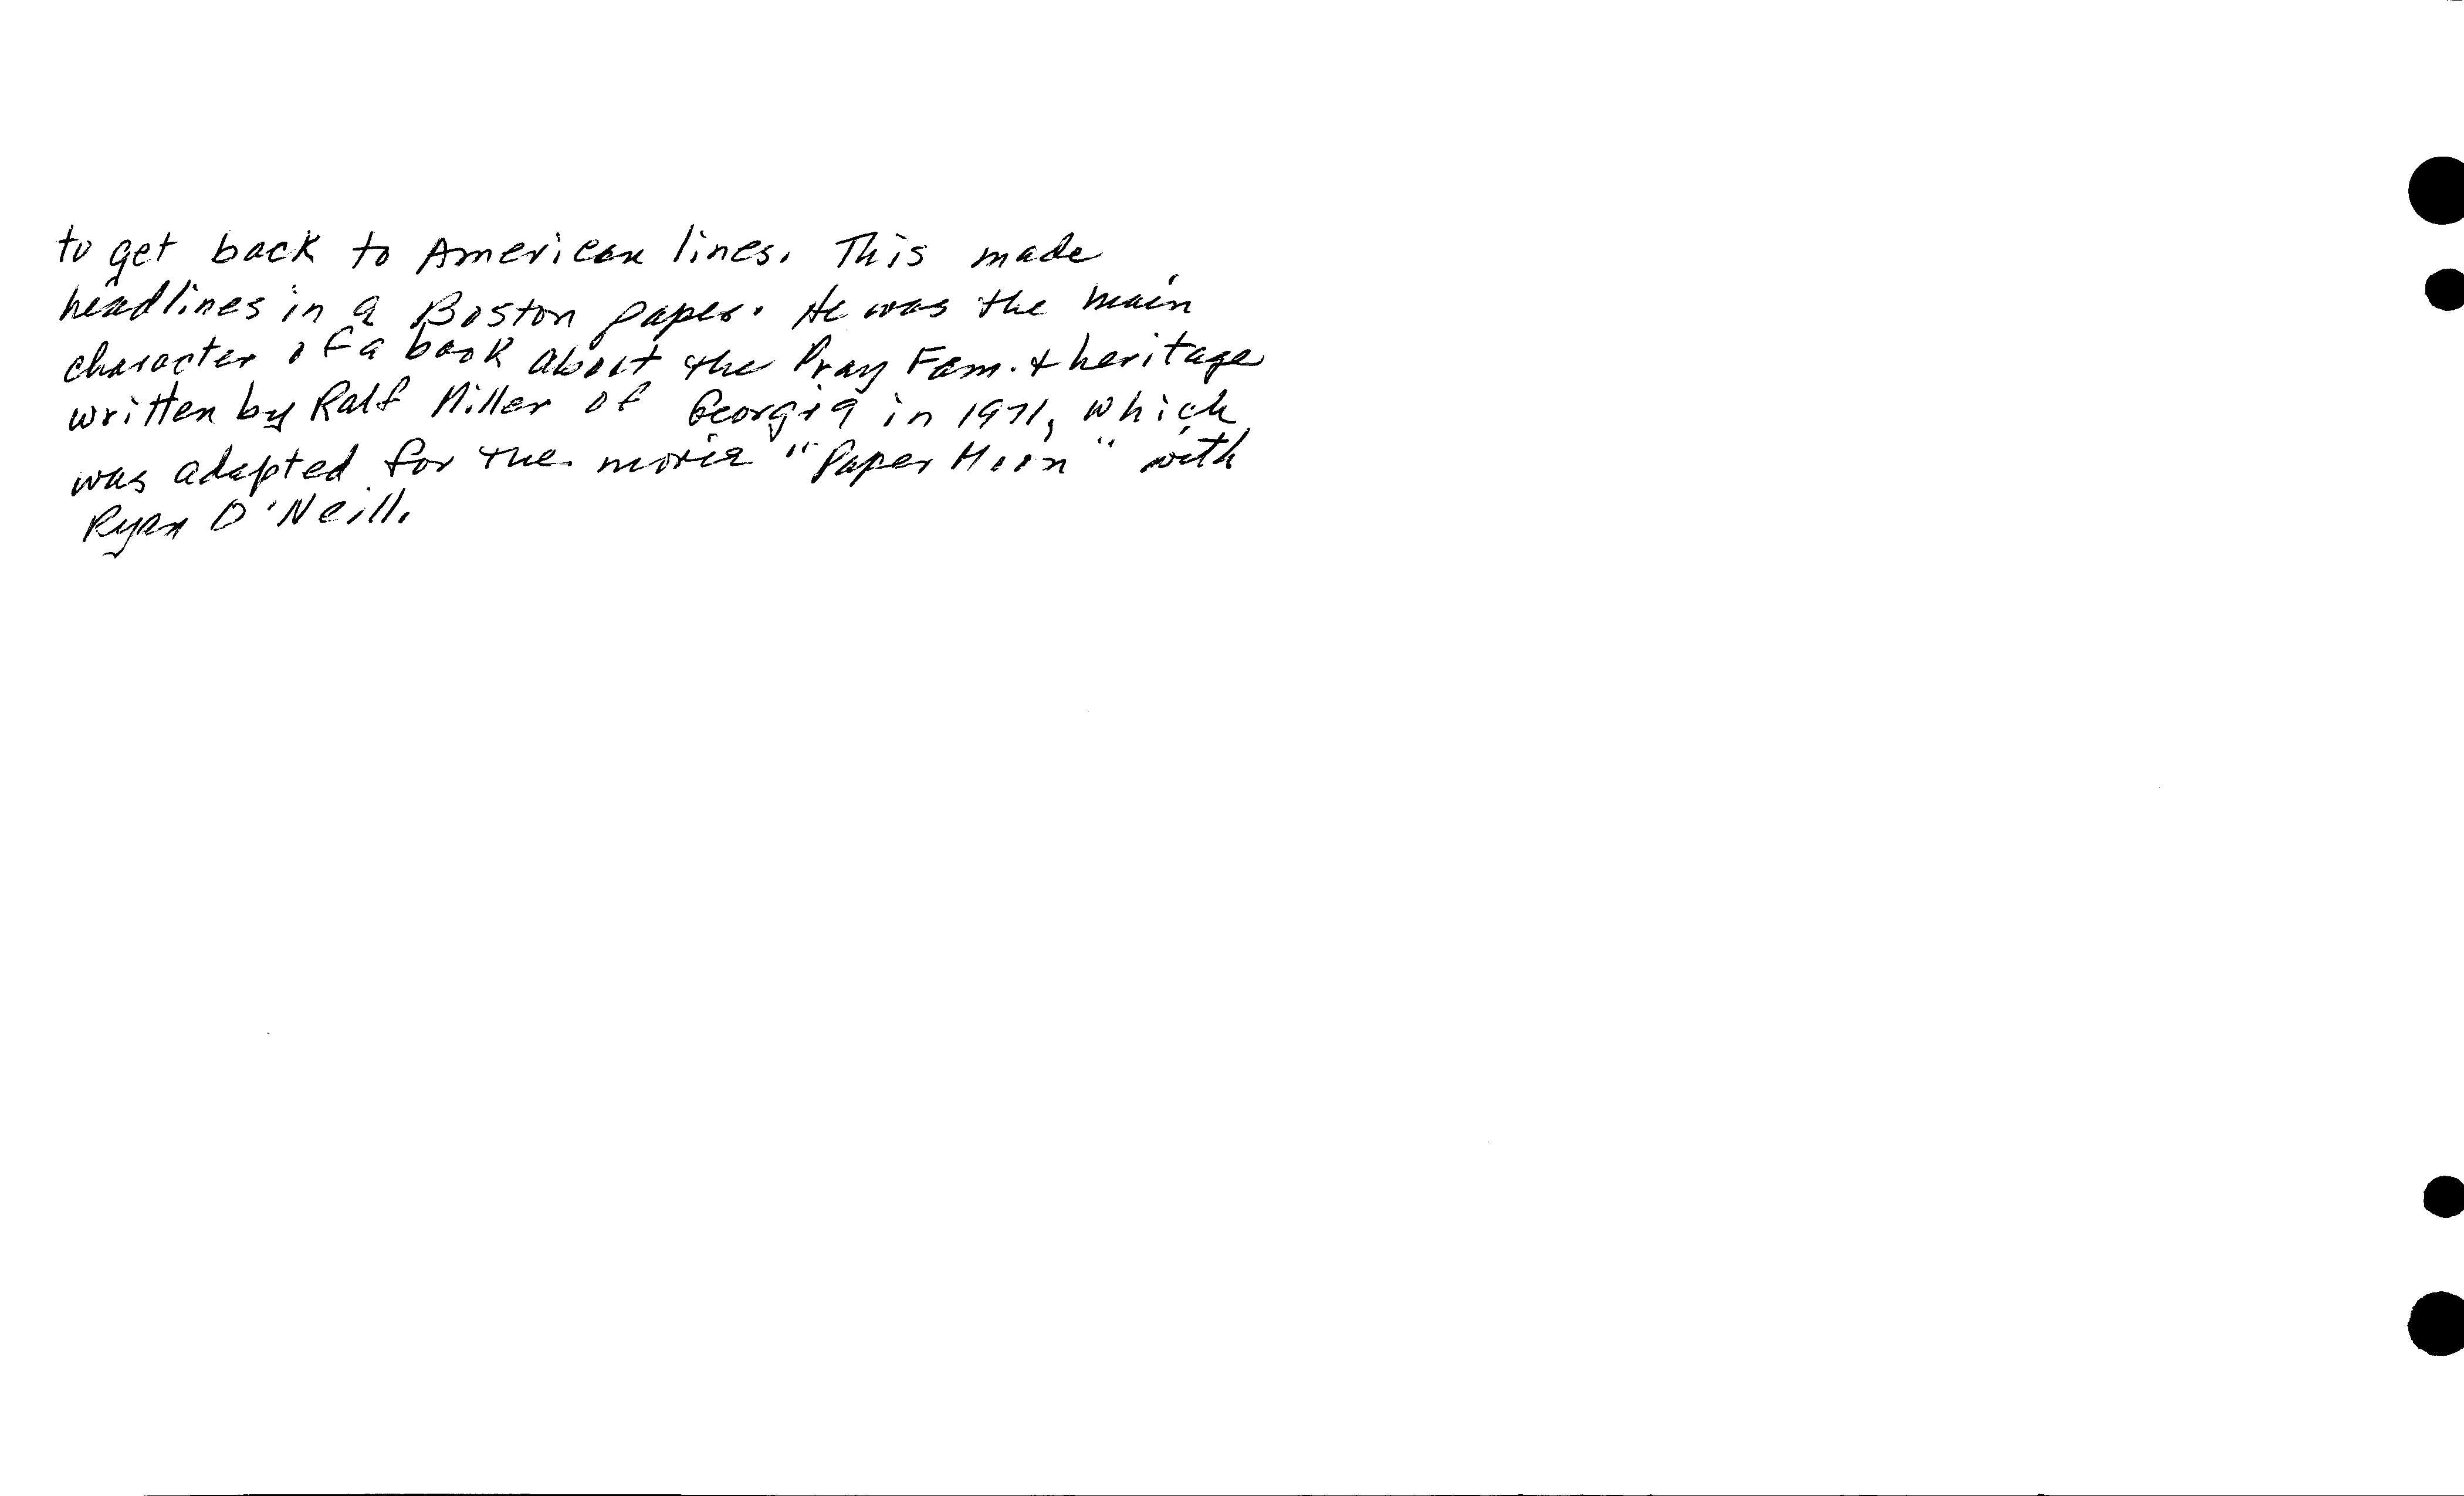 to get back to American lines. This made
headlines in a Boston paper. He was the main
character of a book about the Pray Fam. & heritage
written by Ralf Miller of Georgia in 1971, which
was adapted for the movie "Paper Moon" with
Ryan O'Neill.